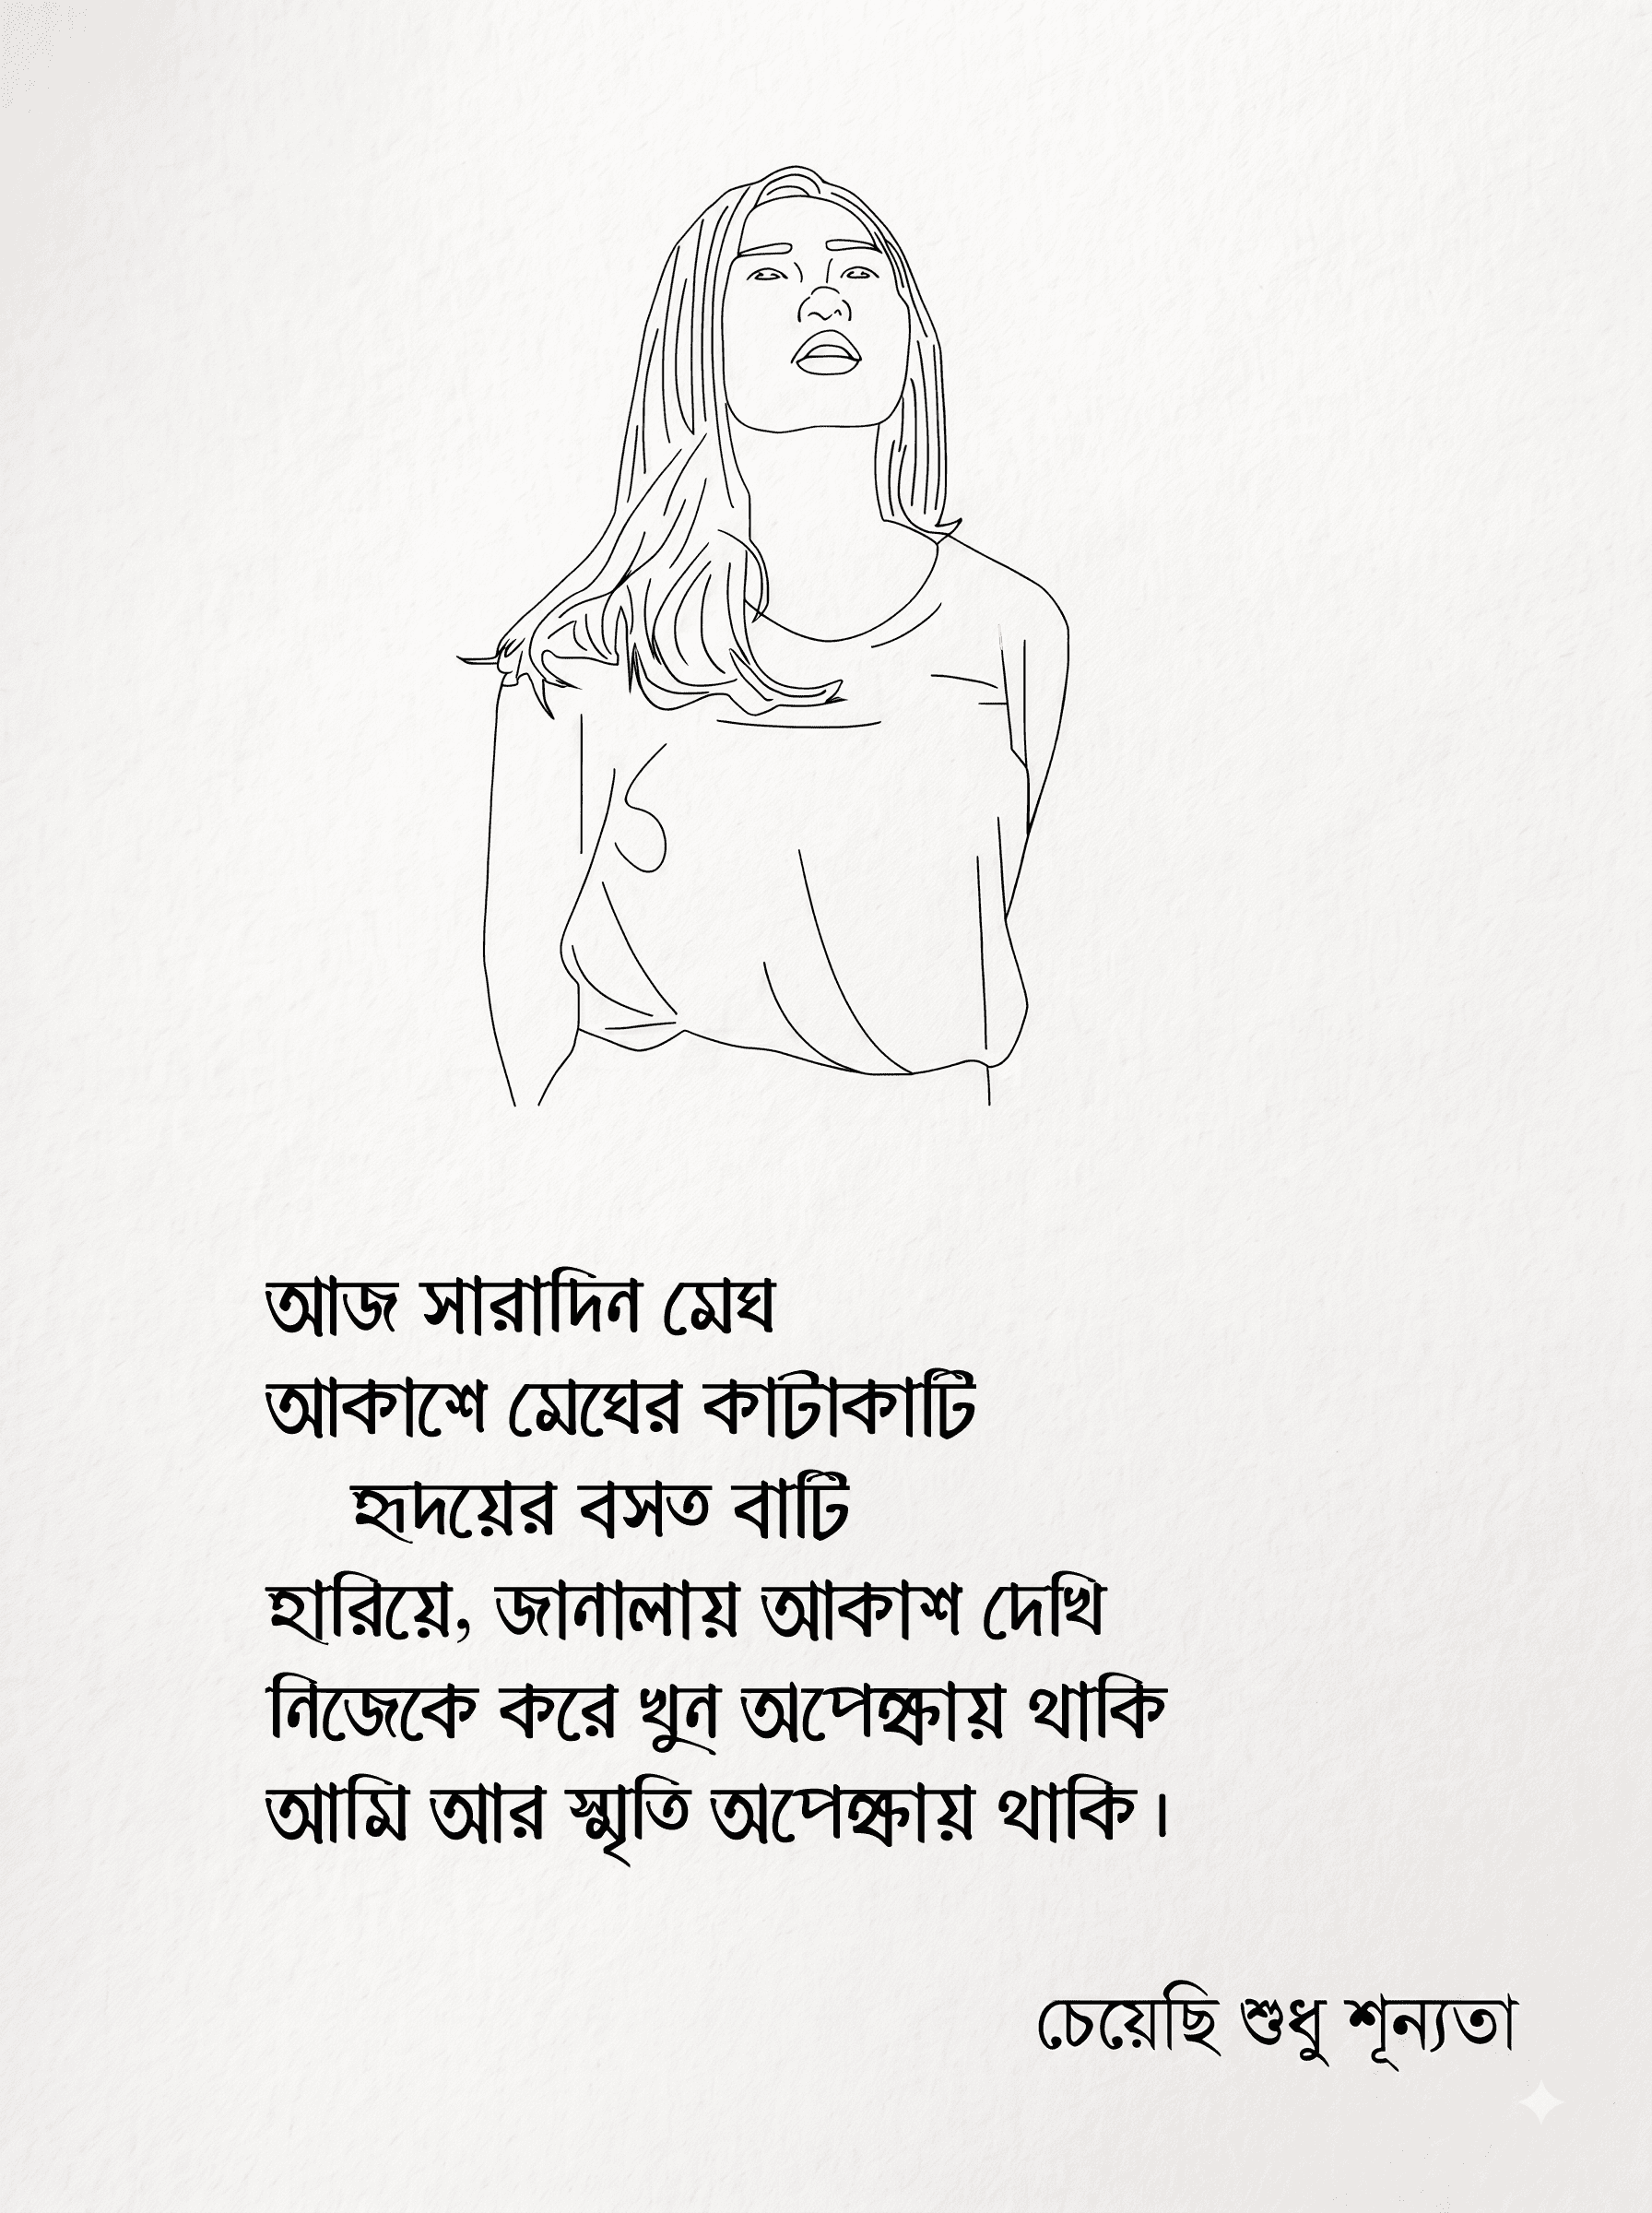 আজ সারাদিন মেঘ
আকাশে মেঘের কাটাকাটি
হৃদয়ের বসত বাটি
হারিয়ে, জানালায় আকাশ দেখি
নিজেকে করে খুন অপেক্ষায় থাকি
আমি আর স্মৃতি অপেক্ষায় থাকি।
চেয়েছি শুধু শূন্যতা